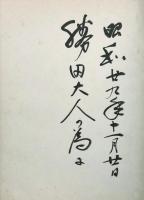 昭和廿九年十一月廿日
勝田大人の為に